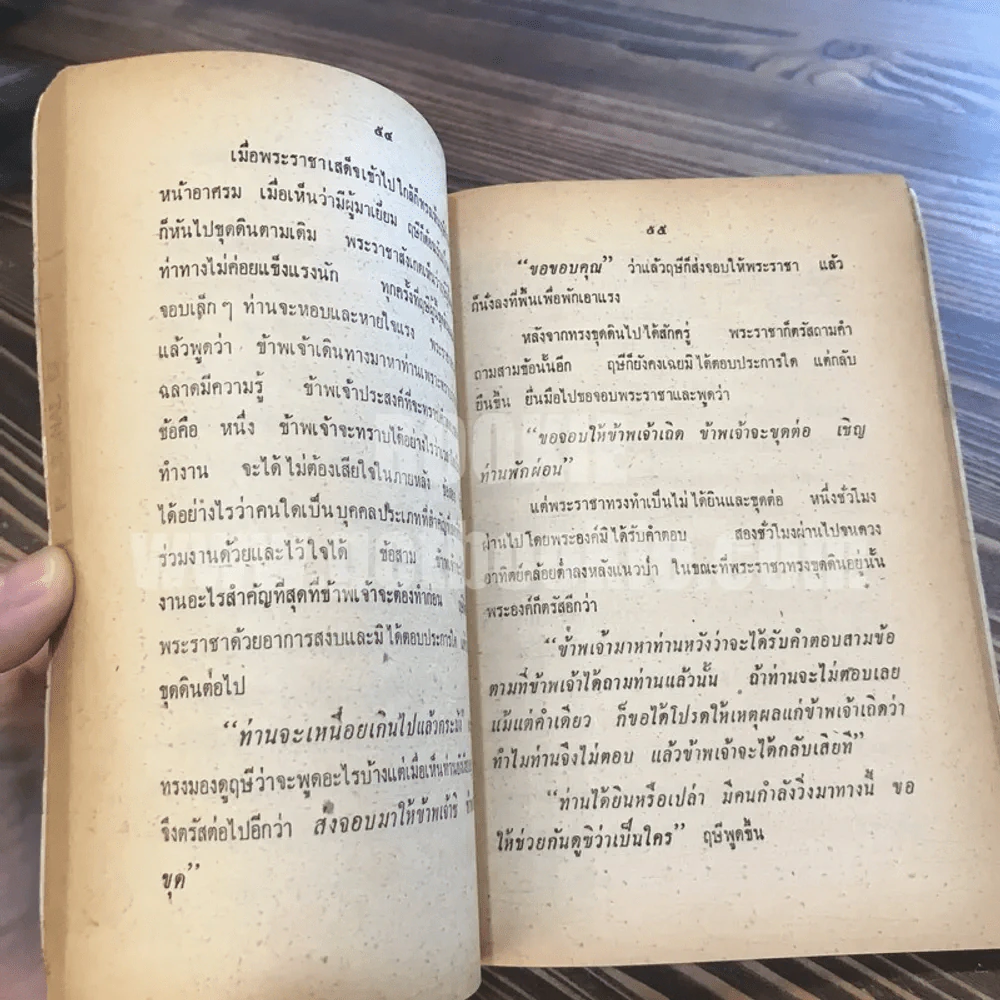 ๕๔
เมื่อพระราชาเสด็จเข้าไปใกล้ก็
หน้าอาศรม เมื่อเห็นว่ามีผู้มาเยี่ยม ฤษีก็
ก็หันไปขุดดินตามเดิม พระราชาสังเกตเห็นว่า
ท่าทางไม่ค่อยแข็งแรงนัก ทุกครั้งที่ฤษี
จอบเล็กๆ ท่านจะหอบและหายใจแรง
แล้วพูดว่า ข้าพเจ้าเดินทางมาหาท่านเพราะ
ฉลาดมีความรู้ ข้าพเจ้าประสงค์ที่จะทราบ
ข้อคือ หนึ่ง ข้าพเจ้าจะทราบได้อย่างไรว่า
ทำงาน จะได้ไม่ต้องเสียใจในภายหลัง
ได้อย่างไรว่าคนใดเป็นบุคคลประเภทที่สำคัญ
ร่วมงานด้วยและไว้ใจได้ ข้อสาม
งานอะไรสำคัญที่สุดที่ข้าพเจ้าจะต้องทำก่อน
พระราชาด้วยอาการสงบและมิได้ตอบประการใด
ขุดดินต่อไป
“ท่านจะเหนื่อยเกินไปแล้วกระมัง
ทรงมองดูฤษีว่าจะพูดอะไรบ้างแต่เมื่อเห็นท่าน
จึงตรัสต่อไปอีกว่า ส่งจอบมาให้ข้าพเจ้าซิ
ขุด”
๕๕
“ขอขอบคุณ” ว่าแล้วฤษีก็ส่งจอบให้พระราชา แล้ว
ก็นั่งลงที่พื้นเพื่อพักเอาแรง
หลังจากทรงขุดดินไปได้สักครู่ พระราชาก็ตรัสถามคำ
ถามสามข้อนั้นอีก ฤษีก็ยังคงเฉยมิได้ตอบประการใด แต่กลับ
ยืนขึ้น ยื่นมือไปขอจอบพระราชาและพูดว่า
“ขอจอบให้ข้าพเจ้าเถิด ข้าพเจ้าจะขุดต่อ เชิญ
ท่านพักผ่อน”
แต่พระราชาทรงทำเป็นไม่ได้ยินและขุดต่อ หนึ่งชั่วโมง
ผ่านไปโดยพระองค์มิได้รับคำตอบ สองชั่วโมงผ่านไปจนดวง
อาทิตย์คล้อยต่ำลงหลังแนวป่า ในขณะที่พระราชาทรงขุดดินอยู่นั้น
พระองค์ก็ตรัสอีกว่า
“ข้าพเจ้ามาหาท่านหวังว่าจะได้รับคำตอบสามข้อ
ตามที่ข้าพเจ้าได้ถามท่านแล้วนั้น ถ้าท่านจะไม่ตอบเลย
แม้แต่คำเดียว ก็ขอได้โปรดให้เหตุผลแก่ข้าพเจ้าเถิดว่า
ทำไมท่านจึงไม่ตอบ แล้วข้าพเจ้าจะได้กลับเสียที”
“ท่านได้ยินหรือเปล่า มีคนกำลังวิ่งมาทางนี้ ขอ
ให้ช่วยกันดูซิว่าเป็นใคร” ฤษีพูดขึ้น